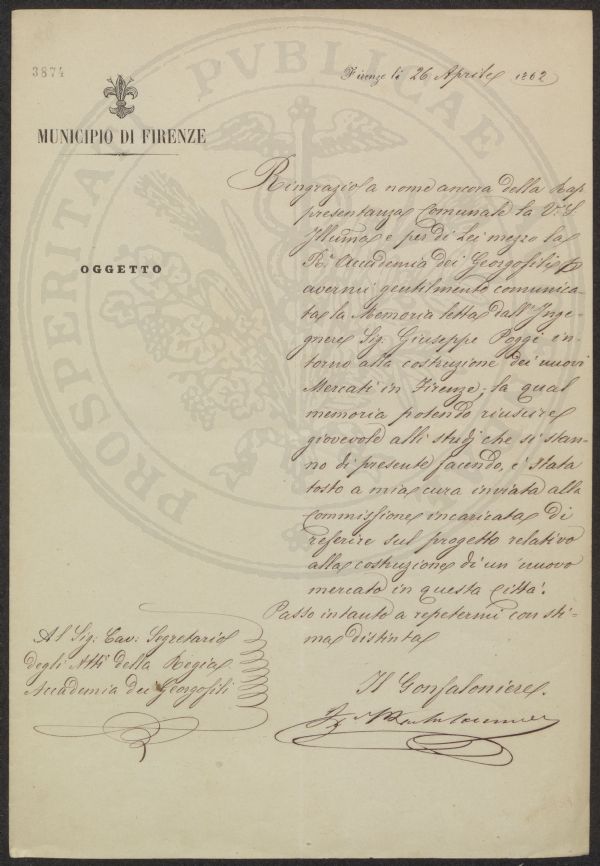 3874
Firenze li 26 Aprile 1862
MUNICIPIO DI FIRENZE
OGGETTO
Ringrazio a nome ancora della Rap
presentanza Comunale la V. S.
Illuma e per di Lei mezzo la
Rl. Accademia dei Georgofili p
avermi gentilmente comunica-
ta la Memoria letta dall' Inge-
gnere Sig: Giuseppe Poggi in-
torno alla costruzione dei nuovi
Mercati in Firenze; la qual
memoria potendo riuscire
giovevole alli studj che si stan-
no di presente facendo, è stata
tosto a mia cura inviata alla
Commissione incaricata di
referire sul progetto relativo
alla costruzione di un nuovo
mercato in questa Città.
Passo intanto a repetermi con sti-
ma distinta
Il Gonfaloniere
Al Sig: Cav: Segretario
degli Atti della Regia
Accademia dei Georgofili
PROSPERITA PVBLICAE